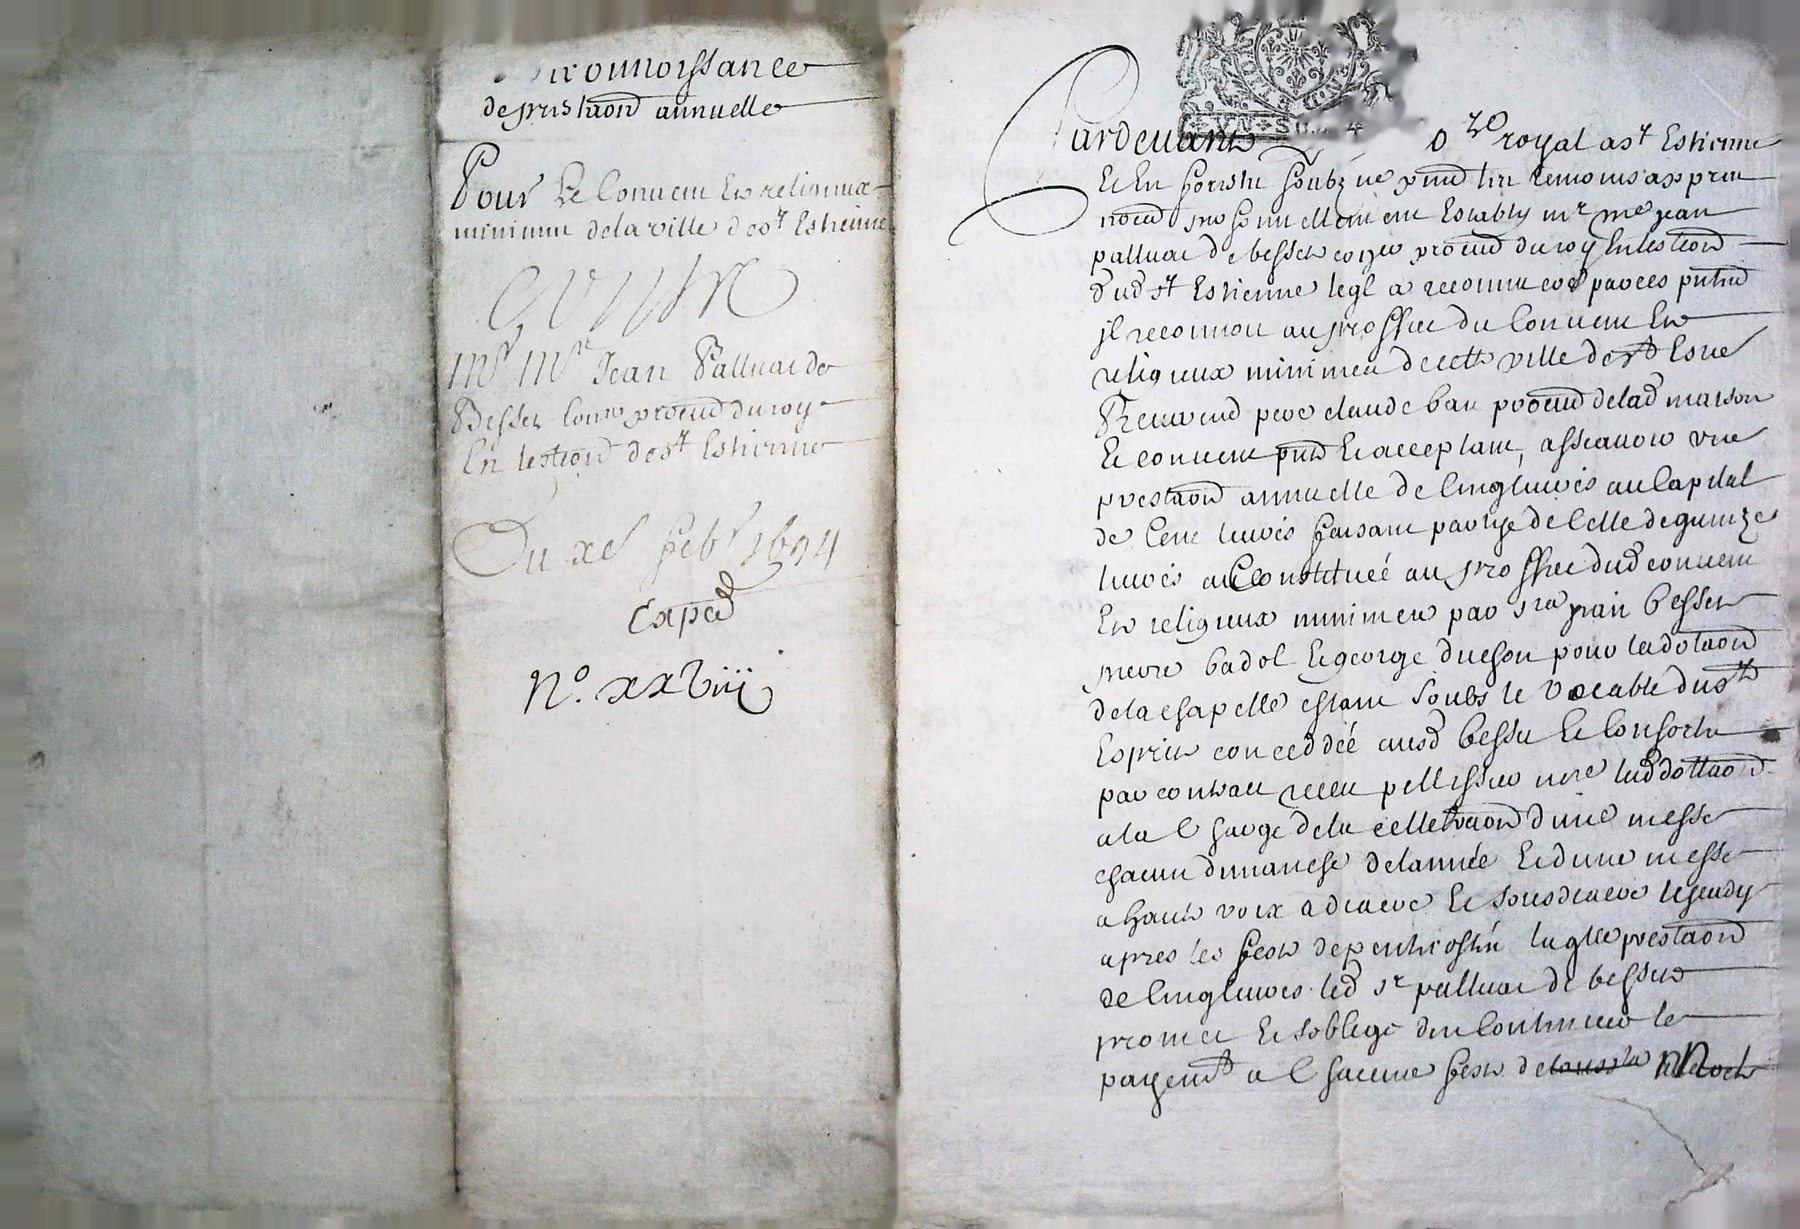 reconnoissance
de prestaõn annuelle
Pour Le Convent Et religieux
minimes de la ville de st Estienne
Contre
mr mre Jean Palluat de
Besset Conr procur du roy
En lection de st Estienne
Du xe febr 1694
Exped
No. xxviii
UN SOL 4
Pardevant no re royal a st Estienne
Et En forestz soubz né pnt les temoins apres
nomes personnellement Estably mr me jean
palluat de besset coner procur du roy En lection
dud st Estienne leql a reconnu et par ces pntes
jl reconnoit au proffict du Convent Et
religieux minimes de cette ville de st Esne
Reverend pere claude procur de lad maison
Et convent pnt Et acceptant, assçavoir une
prestaõn annuelle de Cinq livres au Capital
de Cent livres faisant partye de Celle de quinze
livres Constituée au proffict dud convent
Et religieux minimes par sr jean besset
pierre badol Et george duchon pour la dotaõn
de la chapelle estant soubs le vocable du st
Esprit conceddée ausd besset Et Consorts
par contract receu pellissier nore lad dottaõn
a la Charge de la cellebraõn dune messe
chacun dimanche de lannée Et dune messe
a haute voix a diacre Et sousdiacre le jeudy
apres les festes de penthecoste laqlle prestaõn
de Cinq livres led sr palluat de besset
promet Et soblige den Continuer le
payemt a Chacune feste de